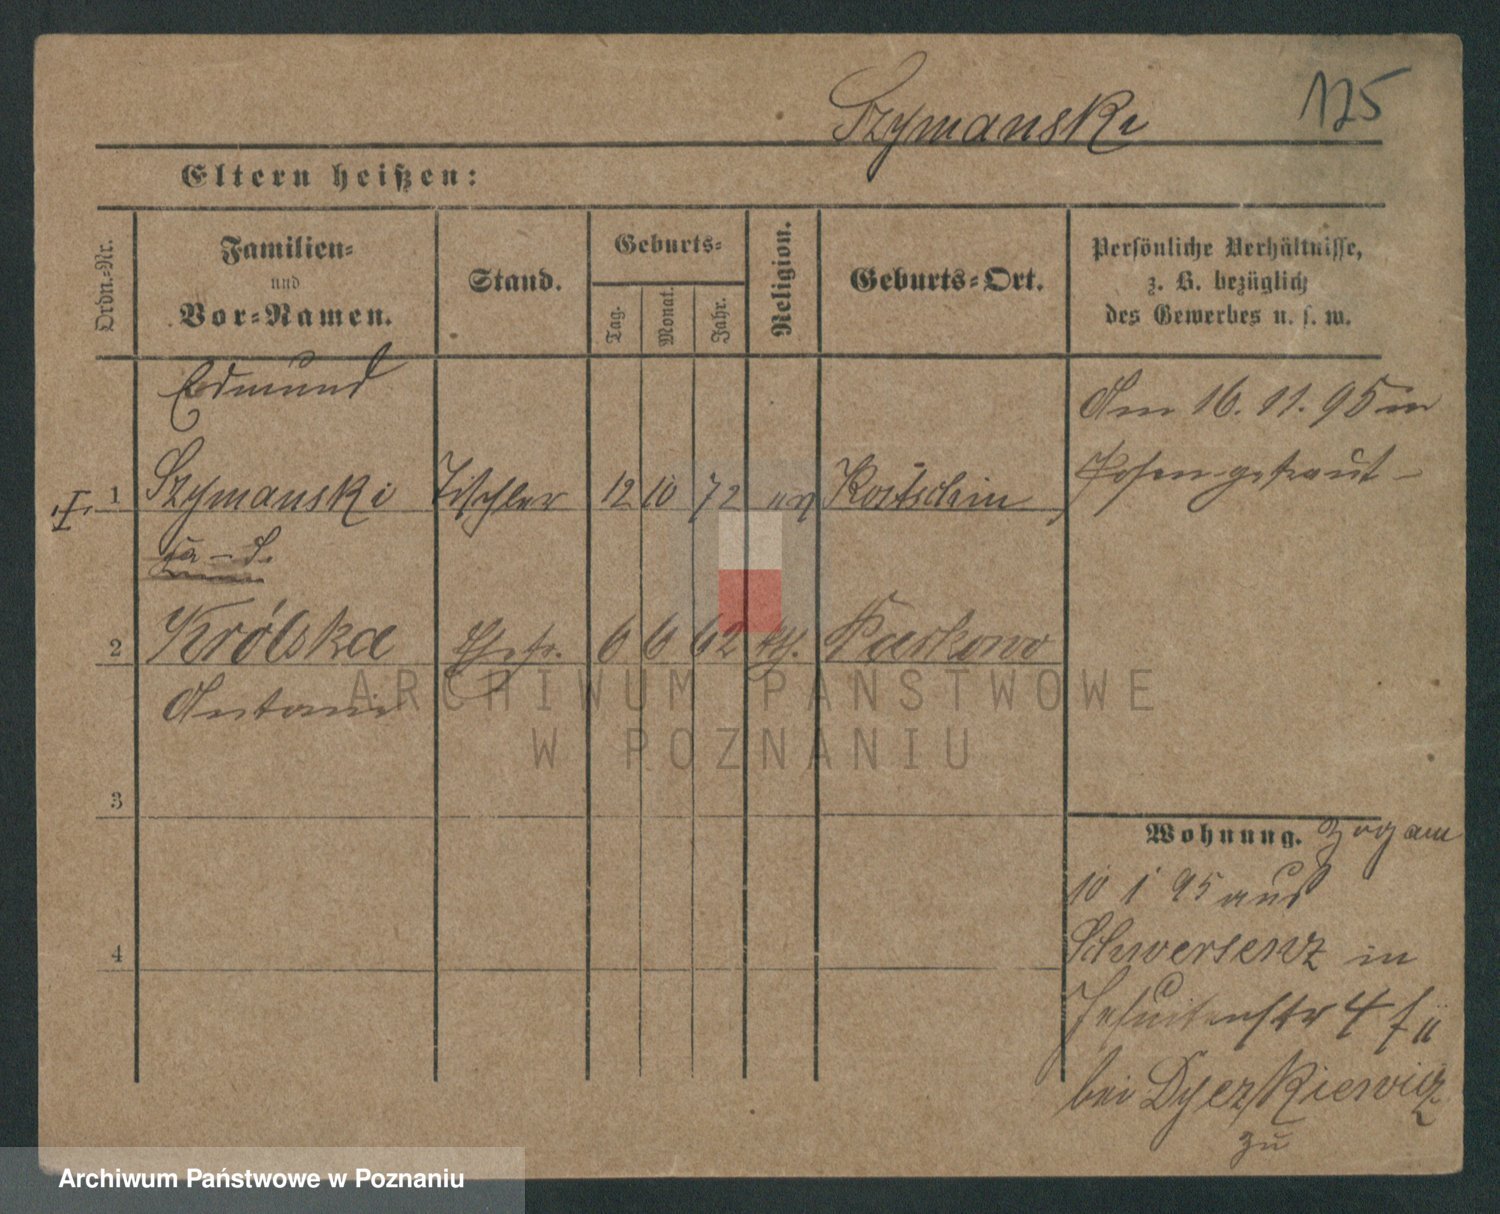 Szymanski
125
Eltern heißen:
Ordn.=Nr.
Familien=
und
Vor=Namen.
Stand.
Geburts=
Tag.
Monat.
Jahr.
Religion.
Geburts=Ort.
Persönliche Verhältnisse,
z. B. bezüglich
des Gewerbes u. s. w.
Edmund
I. 1 Szymanski Tischler 12 10 72 Kostschin
2 Królska Ehefr. 6 6 62 kth.
Antonie
3
4
Am 16. 11. 95 in
Posen getraut
Wohnung. Zog am
10 1 95 aus
Schwersenz in
Jesuitenstr 4
bei
zu
ARCHIWUM PAŃSTWOWE
W POZNANIU
Archiwum Państwowe w Poznaniu